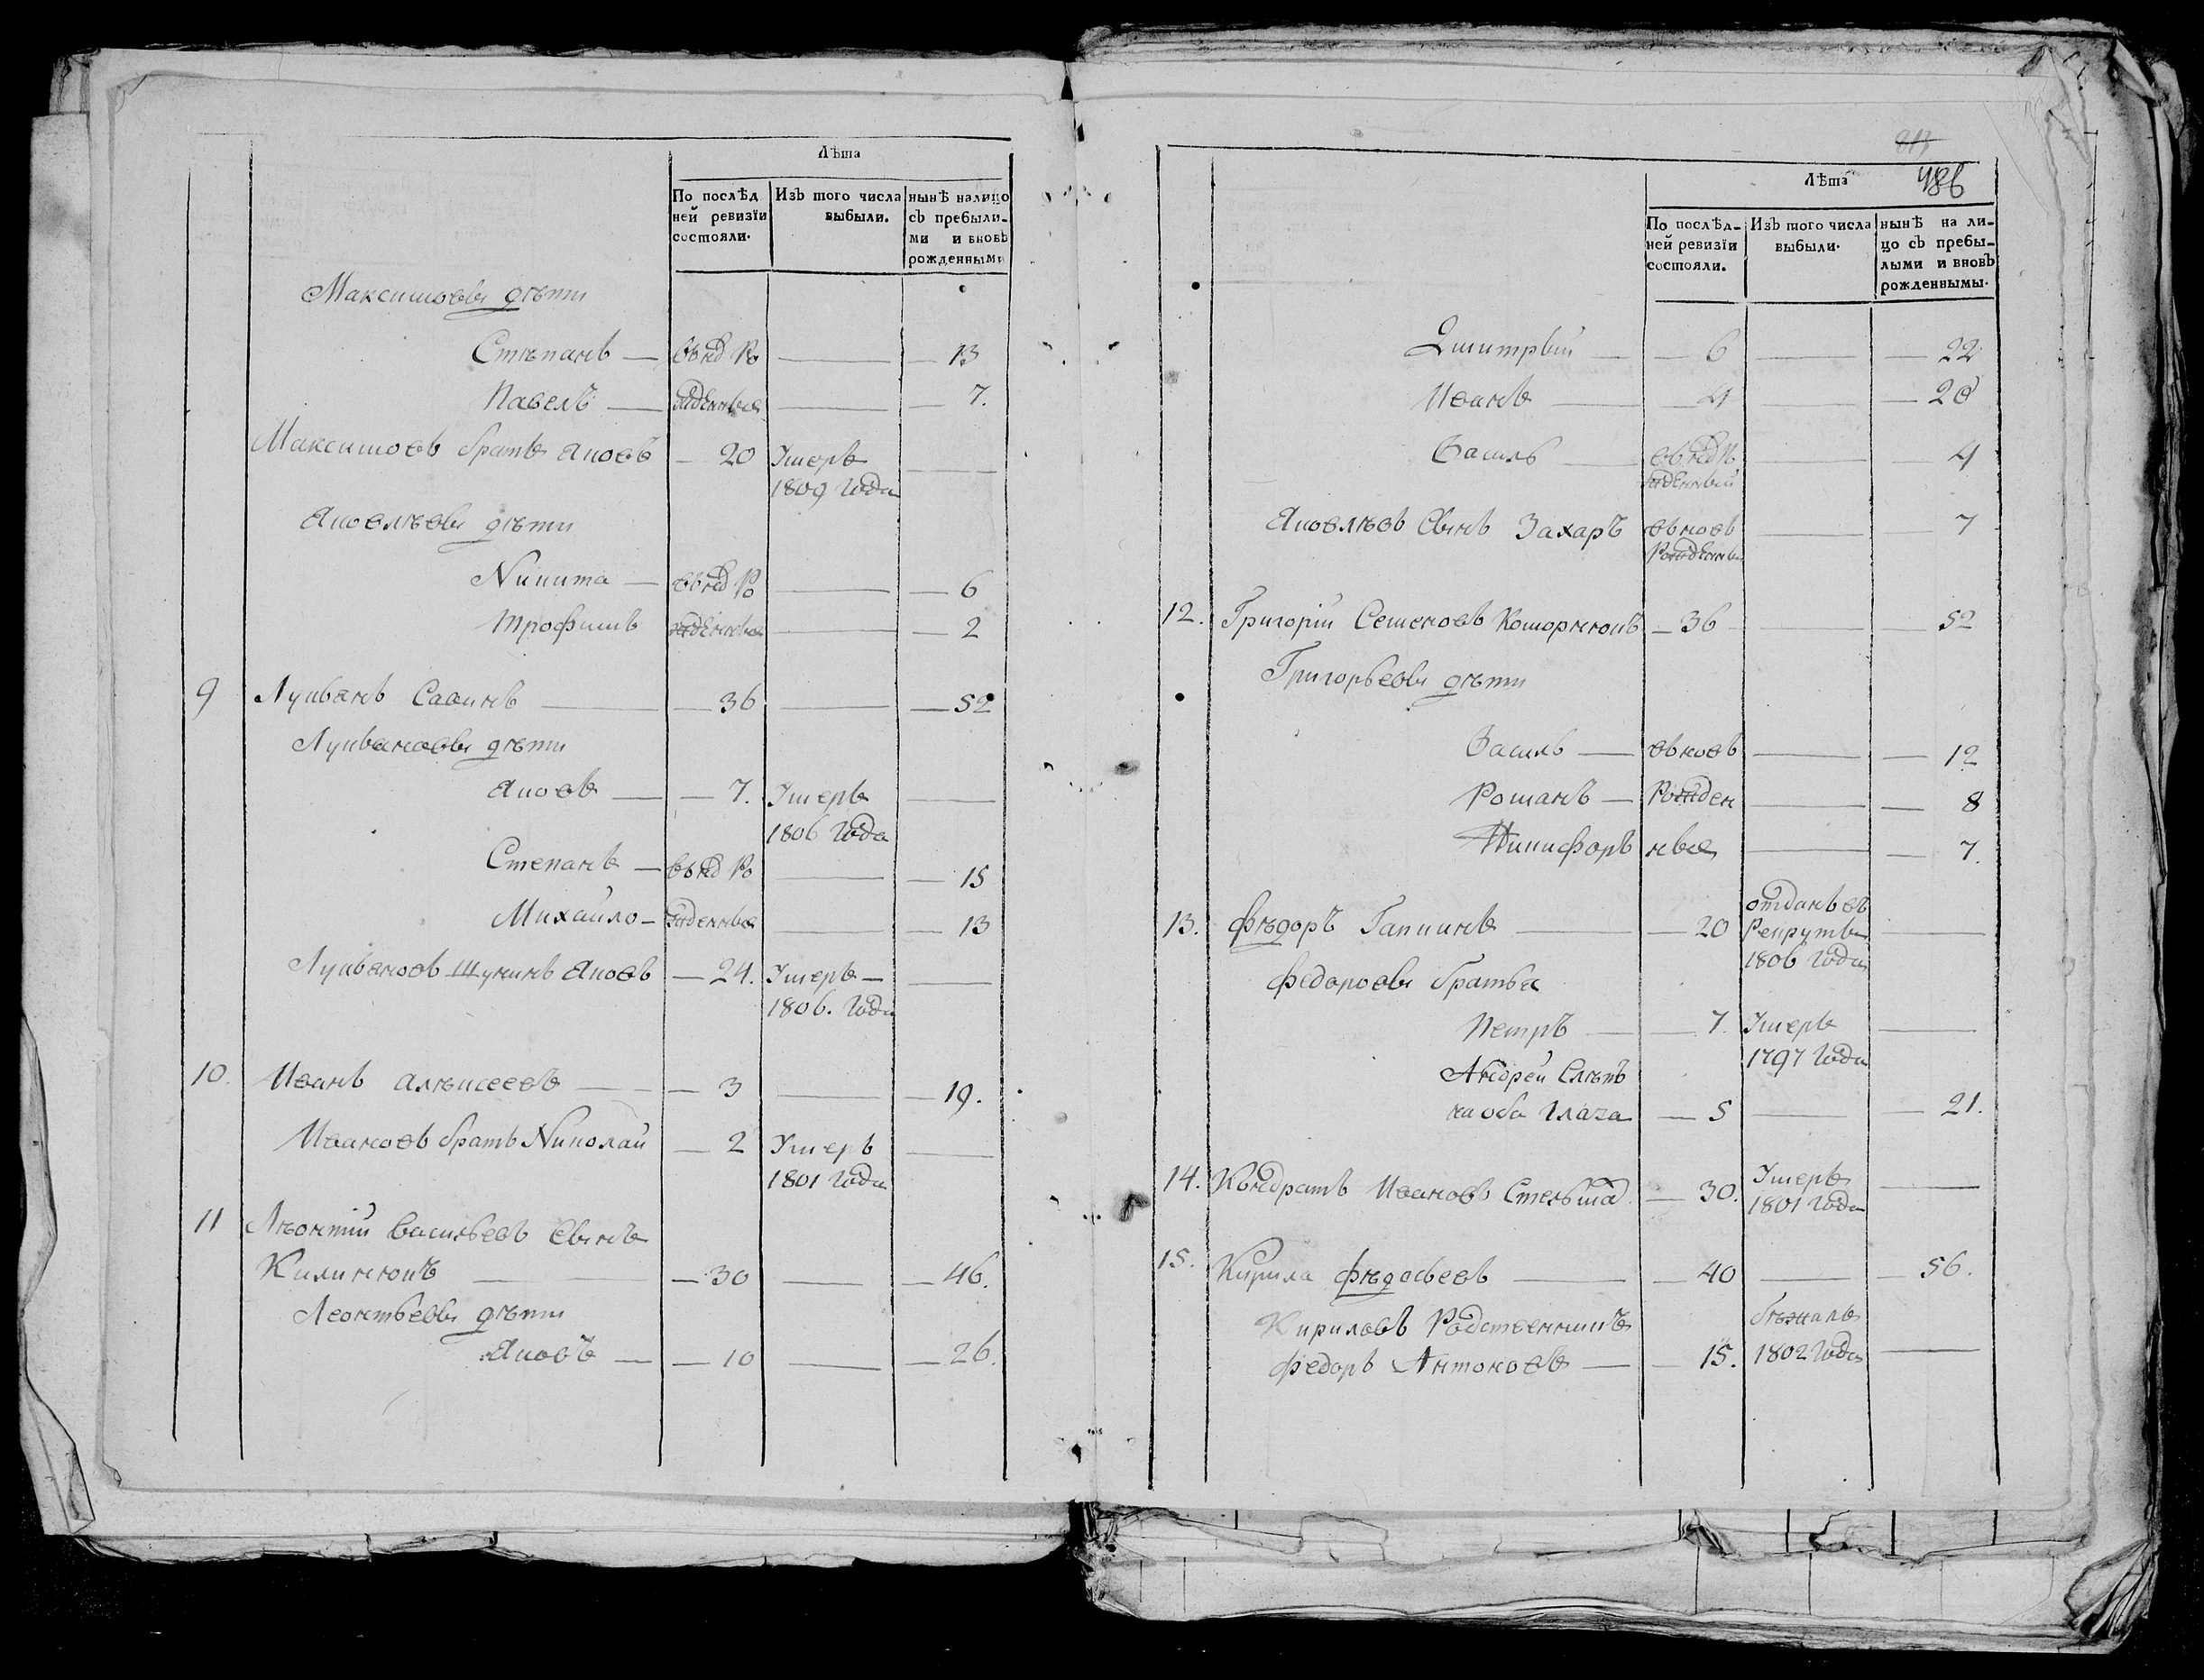 Лѣта
По послѣд
ней ревизїи
состояли.
Изъ того числа
выбыли.
нынѣ налицо
съ пребыли-
ми и вновь
рожденными
Максимовы дѣти
Стѣпанъ — внѡв Ро — 13
Павелъ — жденныя — 7.
Максимовъ братъ Яковъ — 20 Умеръ —
1809 года
Яковлѣвы дѣти
Никита — внѡв Ро — 6
Трофимъ жденныя — 2
9 Лукьянъ Савинъ — 36 — 52
Лукьяновы дѣти
Яковъ — 7. Умеръ —
1806 года
Степанъ — внѡв Ро — 15
Михайло — жденныя — 13
Лукьяновъ Шуринъ Яковъ — 24. Умеръ —
1806. года
10. Иванъ Алѣксеевъ — 3 — 19.
Ивановъ братъ Николай — 2 Умеръ —
1801 года
11 Лѣонтий Васильевъ Сынъ
Килинюкъ — 30 — 46.
Леонтьевы дѣти
Яковъ — 10 — 26.
813
486
Лѣта
По послѣд-
ней ревизїи
состояли.
Изъ того числа
выбыли.
нынѣ на ли-
цо съ пребы-
лыми и вновь
рожденнымы.
Дмитрый — 6 — 22
Иванъ — 4 — 20
Василь — внѡв Ро — 4
жденный
Яковлѣвъ Сынъ Захаръ вновь — 7
Рожденны
12. Григорій Семеновъ Которнюкъ — 36 — 52
Григорьевы дѣти
Василь — вновь — 12
Романъ — Рожден — 8
Никифоръ ныя — 7.
13. Фѣдоръ Гапкинъ — 20 отданъ въ
Рекруты —
1806 года
Федоровы братья
Петръ — 7. Умеръ —
1797 года
Андрей Слѣпъ
на оба глаза — 5 — 21.
14. Кондратъ Ивановъ Стельмах — 30. Умеръ —
1801 года
15. Кирила Фѣдосьевъ — 40 — 56.
Кириловъ Родственникъ бѣжалъ
Федоръ Антоновъ — 15. 1802 года —